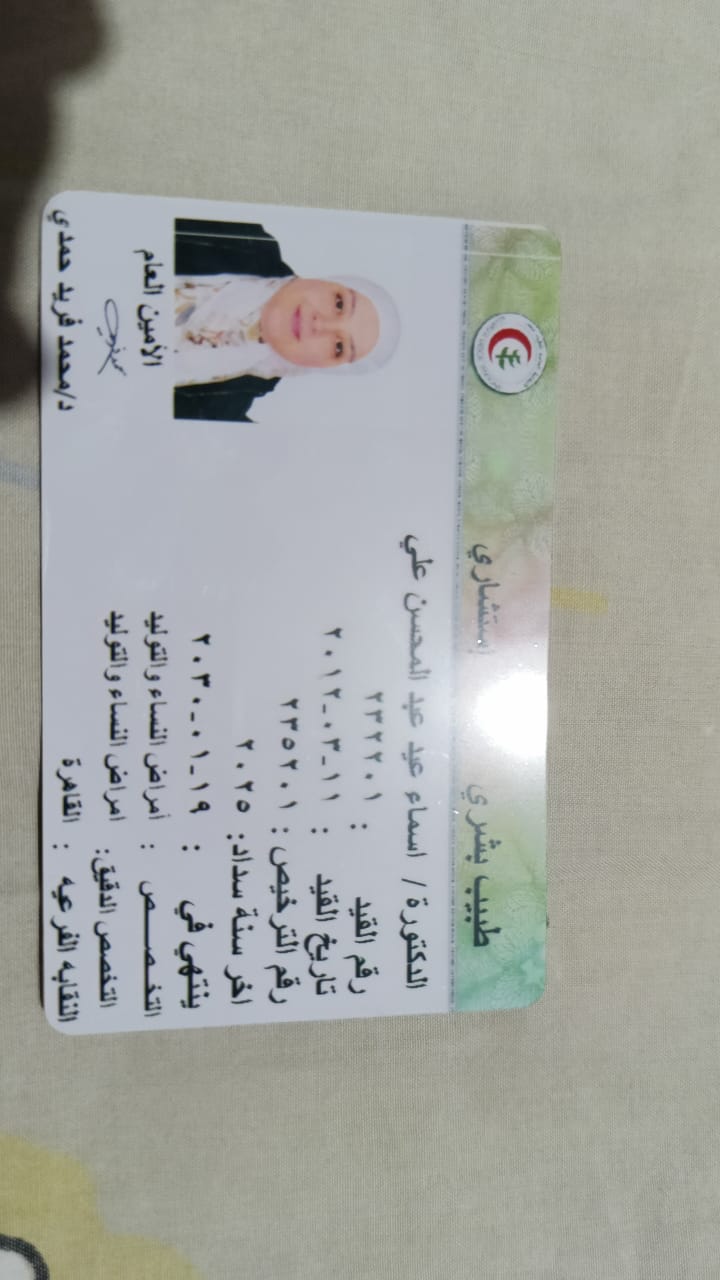 طبيب بشري إستشاري
الدكتورة / اسماء عيد عبد المحسن علي
رقم القيد : ٢٣٢٢٠١
تاريخ القيد : ٢٠١٢-٠٣-١١
رقم الترخيص : ٢٣٥٢٠١
اخر سنة سداد: ٢٠٢٥
ينتهي في : ٢٠٣٠-٠١-١٩
التخصص : أمراض النساء والتوليد
التخصص الدقيق: امراض النساء والتوليد
النقابه الفرعيه : القاهرة
الأمين العام
د/محمد فريد حمدي